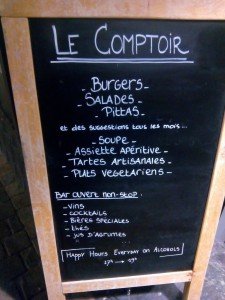 LE COMPTOIR
BURGERS -
- SALADES -
- PITTAS -
et des suggestions tous les mois...
- SOUPE -
- ASSIETTE APÉRITIVE -
- TARTES ARTISANALES -
- PLATS VEGETARIENS -
BAR OUVERT NON-STOP :
- VINS
- COCKTAILS
- BIÈRES SPÉCIALES
- THÉS
- JUS D'AGRUMES
HAPPY HOURS EVERYDAY ON ALCOHOLS
17H → 19H